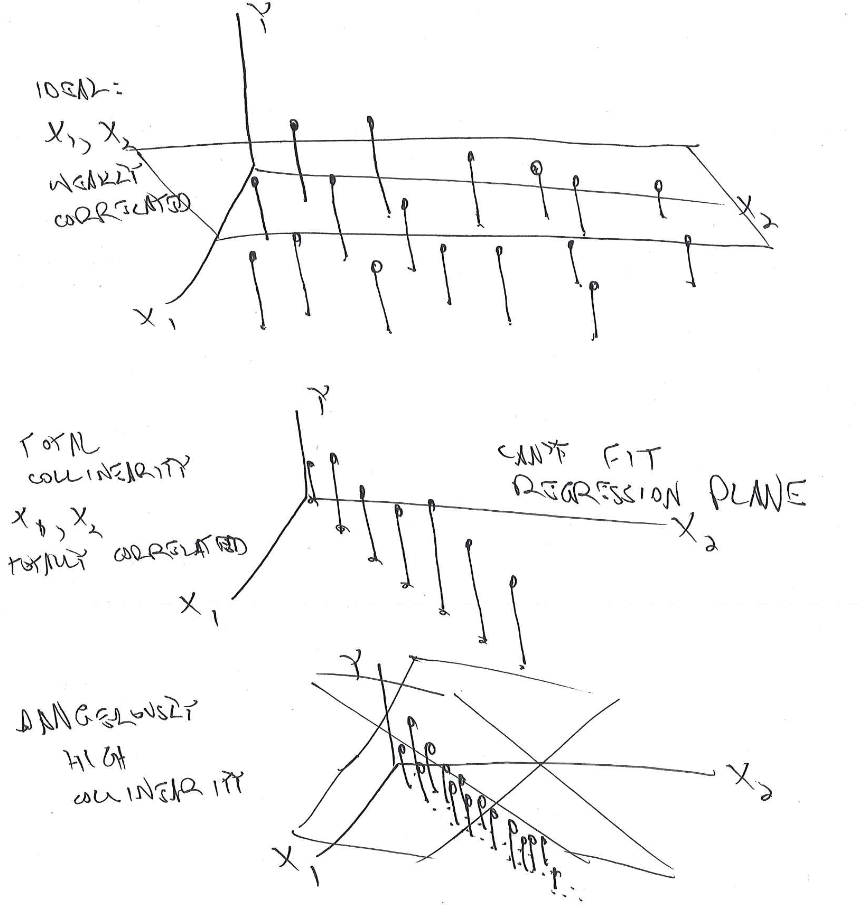 Y
IDEAL:
X1, X2
WEAKLY
CORRELATED
X2
X1
Y
TOTAL
COLLINEARITY
X1, X2
TOTALLY CORRELATED
CAN'T FIT
REGRESSION PLANE
X2
X1
Y
DANGEROUSLY
HIGH
COLLINEARITY
X2
X1